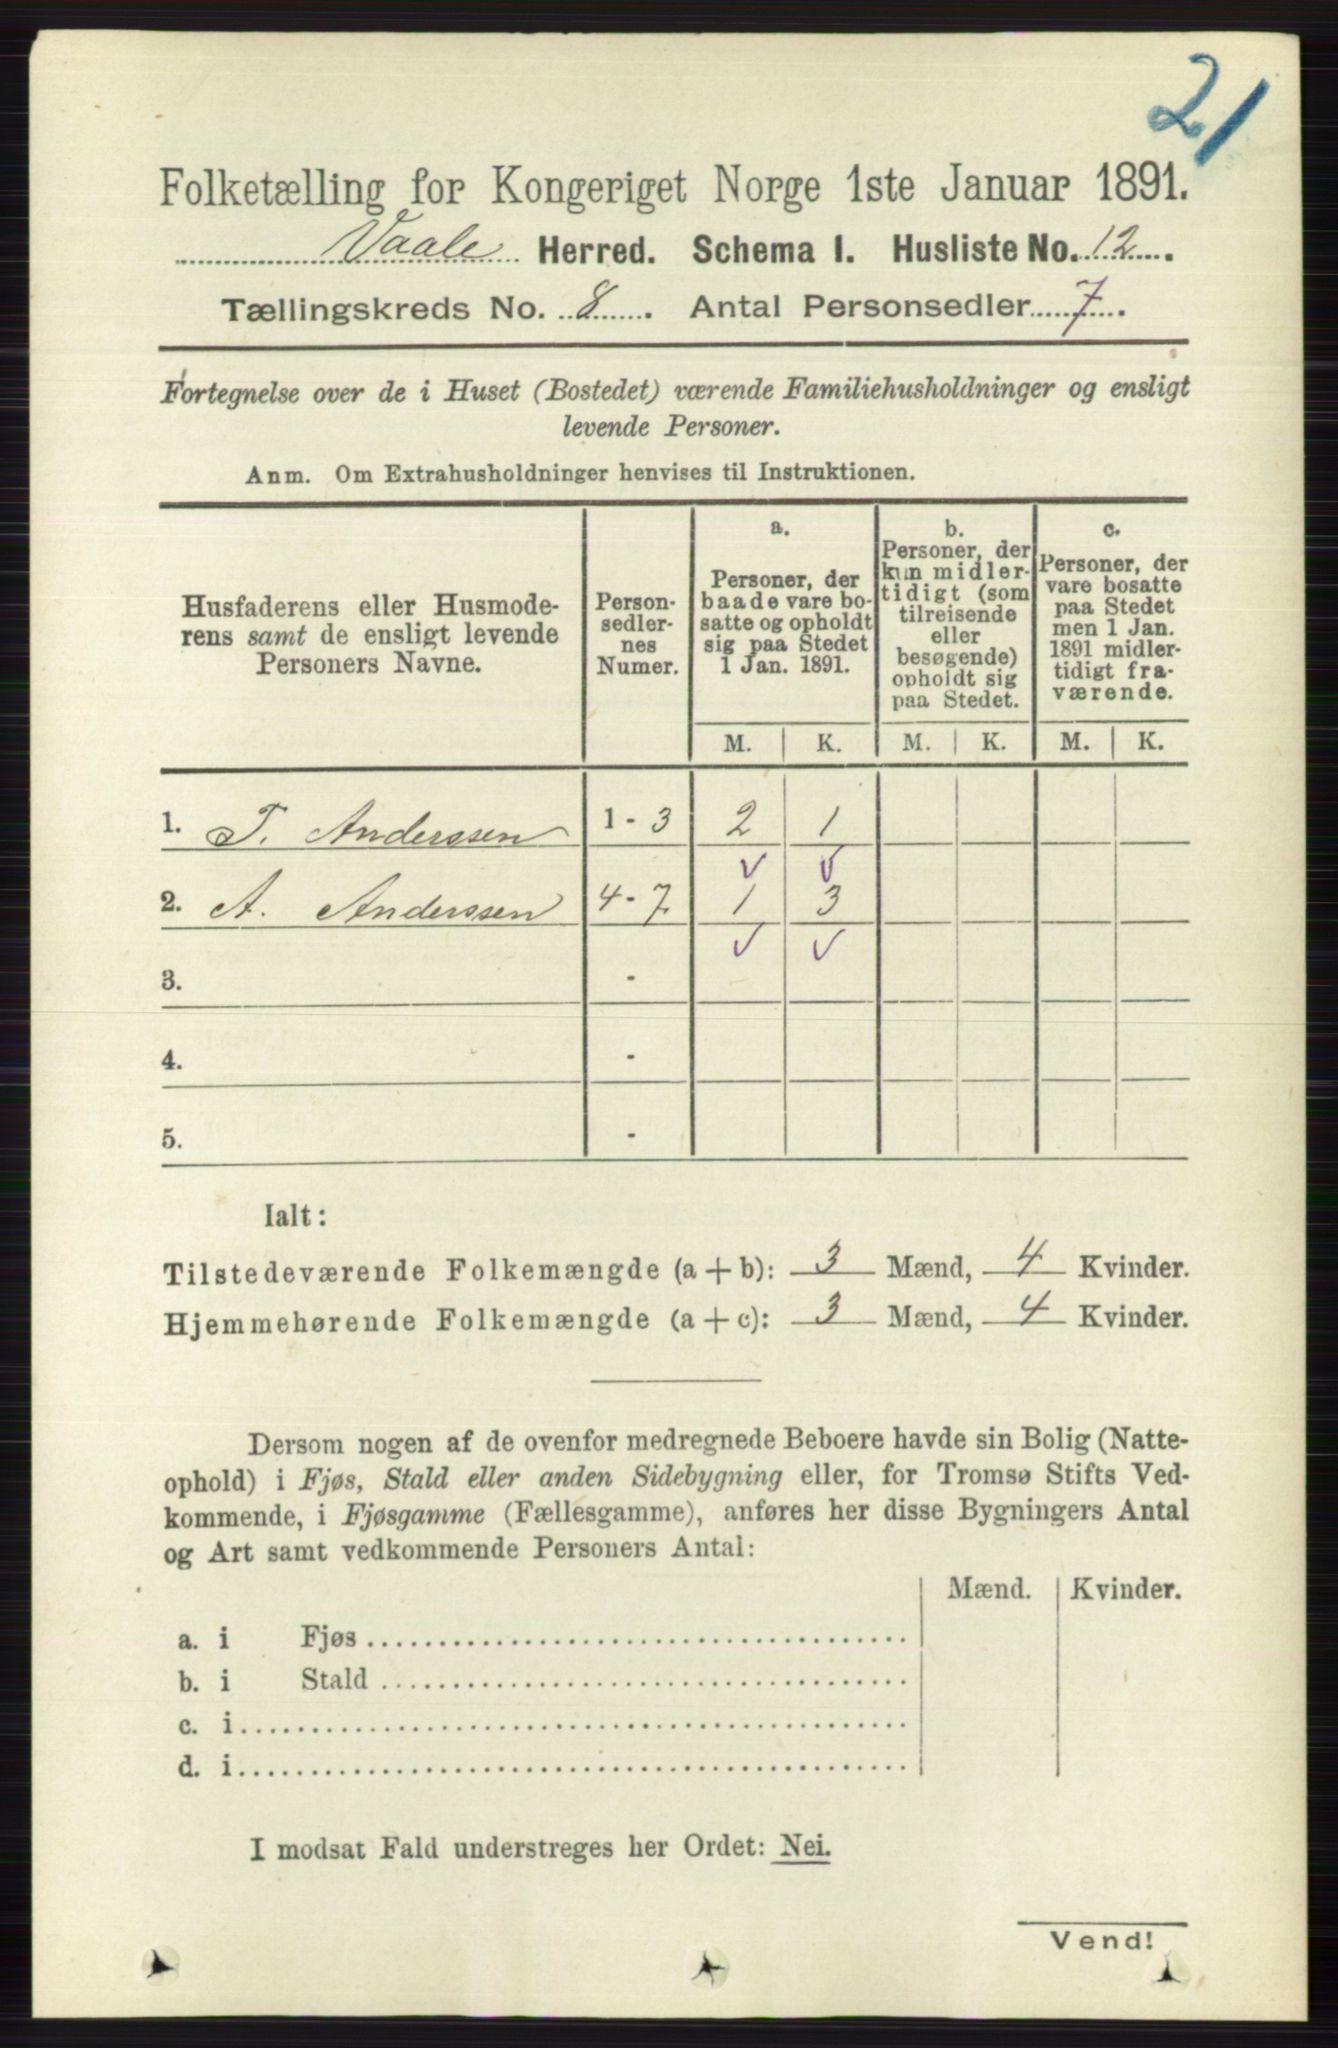 21
Folketælling for Kongeriget Norge 1ste Januar 1891.
Vaale Herred. Schema I. Husliste No. 12.
Tællingskreds No. 8. Antal Personsedler 7.
Fortegnelse over de i Huset (Bostedet) værende Familiehusholdninger og ensligt
levende Personer.
Anm. Om Extrahusholdninger henvises til Instruktionen.
Husfaderens eller Husmode-
rens samt de ensligt levende
Personers Navne.
Person-
sedler-
nes
Numer.
a.
Personer, der
baade vare bo-
satte og opholdt
sig paa Stedet
1 Jan. 1891.
b.
Personer, der
kun midler-
tidigt (som
tilreisende
eller
besøgende)
opholdt sig
paa Stedet.
c.
Personer, der
vare bosatte
paa Stedet
men 1 Jan.
1891 midler-
tidigt fra-
værende.
M. K. M. K. M. K.
1. T. Anderssen 1 - 3 2 1
2. A. Anderssen 4 - 7 1 3
3. -
4. -
5. -
Ialt:
Tilstedeværende Folkemængde (a + b): 3 Mænd, 4 Kvinder.
Hjemmehørende Folkemængde (a + c): 3 Mænd, 4 Kvinder.
Dersom nogen af de ovenfor medregnede Beboere havde sin Bolig (Natte-
ophold) i Fjøs, Stald eller anden Sidebygning eller, for Tromsø Stifts Ved-
kommende, i Fjøsgamme (Fællesgamme), anføres her disse Bygningers Antal
og Art samt vedkommende Personers Antal:
Mænd. Kvinder.
a. i Fjøs
b. i Stald
c. i
d. i
I modsat Fald understreges her Ordet: Nei.
Vend!